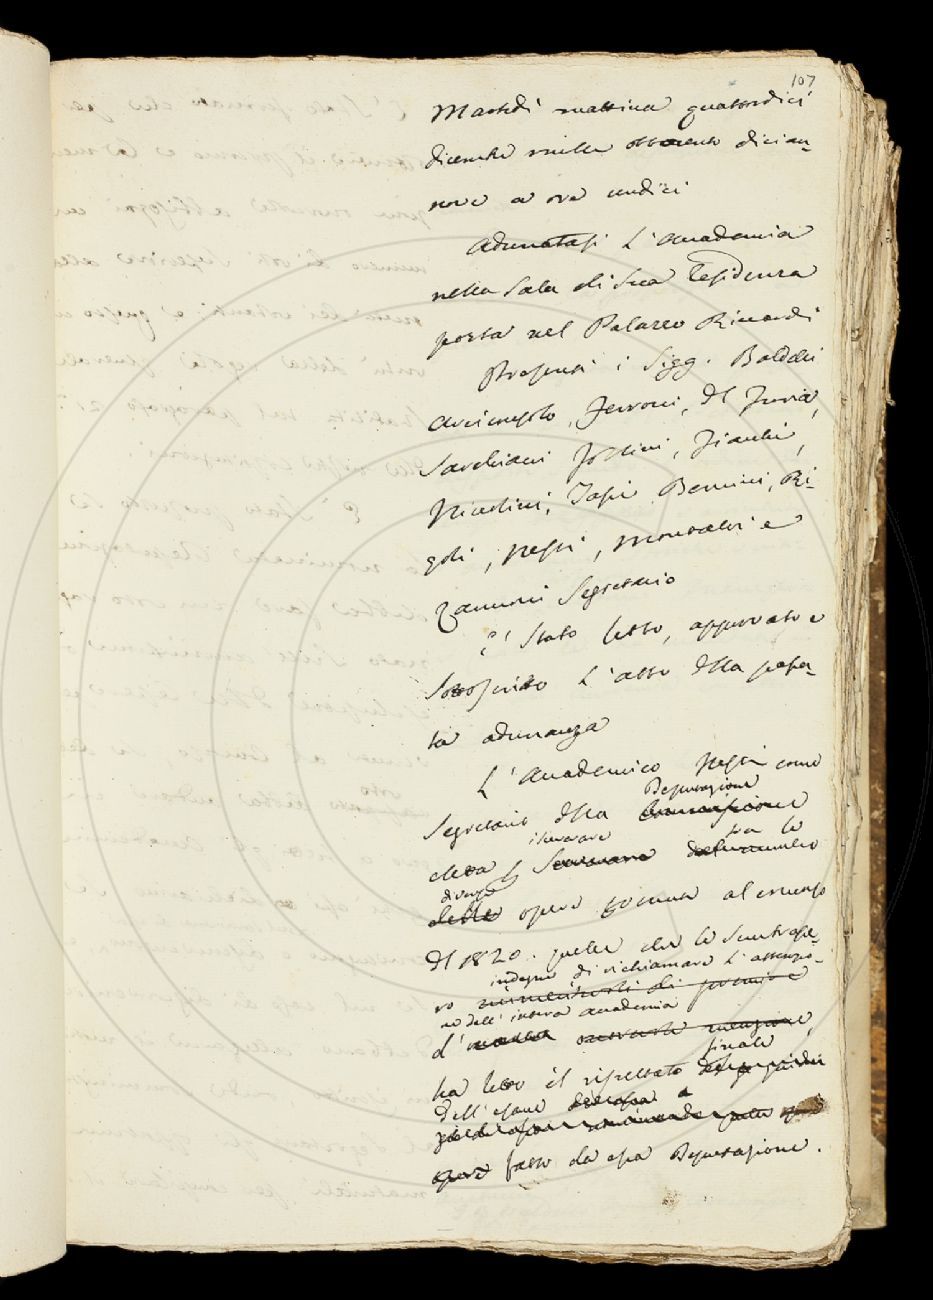 107
Martedì mattina quattordici
dicembre mille ottocento dician-
nove a ore undici
Adunatasi l'Accademia
nella Sala di Sua Residenza
posta nel Palazzo Riccardi
Presenti i Sigg. Baldelli
Arciconsolo, Ferroni, Del Furia,
Sarchiani Follini, Fiacchi,
Niccolini, Tassi Bencini, Ri-
goli, Nessi, Montalvi e
Zannoni Segretario
È stato letto, approvato e
Sottoscritto l'atto della passa-
ta adunanza
L'Accademico Nessi come
Deputazione
Segretario della
eletta tra le
diverse
opere venute al concorso
del 1820. quelle che le Sembrasse-
indegne di richiamare l'attenzio-
ro
ne dell'intera accademia
d'
finale
ha letto il rispettato
dell'esame
fatto da essa Deputazione.